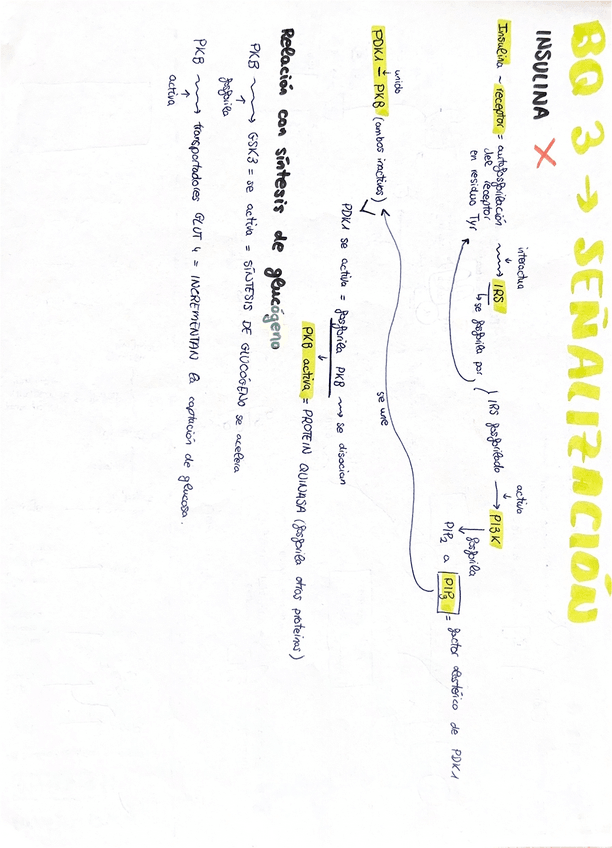 BQ 3 → SEÑALIZACIÓN
INSULINA X
Insulina ~ receptor = autofosforilación
del receptor
en residuo Tyr
interactua
IRS
se fosforila por
IRS fosforilado → PI3K
activa
fosforila
PIP2 a PIP3 = factor alostérico de PDK1
unido
PDK1 - PKB (ambos inactivos)
se une
PDK1 se activa = fosforila PKB → se disocian
PKB activa = PROTEIN QUINASA (fosforila otras proteínas)
Relación con síntesis de glucógeno
PKB → GSK3 = se activa = SÍNTESIS DE GLUCÓGENO se acelera
fosforila
PKB → transportadores GLUT 4 = INCREMENTAN la captación de glucosa.
activa